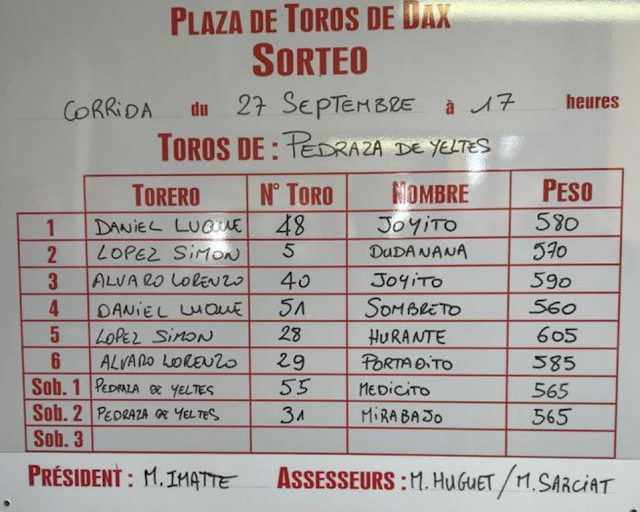 PLAZA DE TOROS DE DAX
SORTEO
CORRIDA du 27 SEPTEMBRE à 17 heures
TOROS DE : PEDRAZA DE YELTES
TORERO N° TORO NOMBRE PESO
1 DANIEL LUQUE 48 JOYITO 580
2 LOPEZ SIMON 5 DUDANANA 570
3 ALVARO LORENZO 40 JOYITO 590
4 DANIEL LUQUE 51 SOMBRETO 560
5 LOPEZ SIMON 28 HURANTE 605
6 ALVARO LORENZO 29 PORTADITO 585
Sob. 1 PEDRAZA DE YELTES 55 MEDICITO 565
Sob. 2 PEDRAZA DE YELTES 31 MIRABAJO 565
Sob. 3
PRÉSIDENT : M. IMATTE ASSESSEURS : M. HUGUET / M. SARCIAT